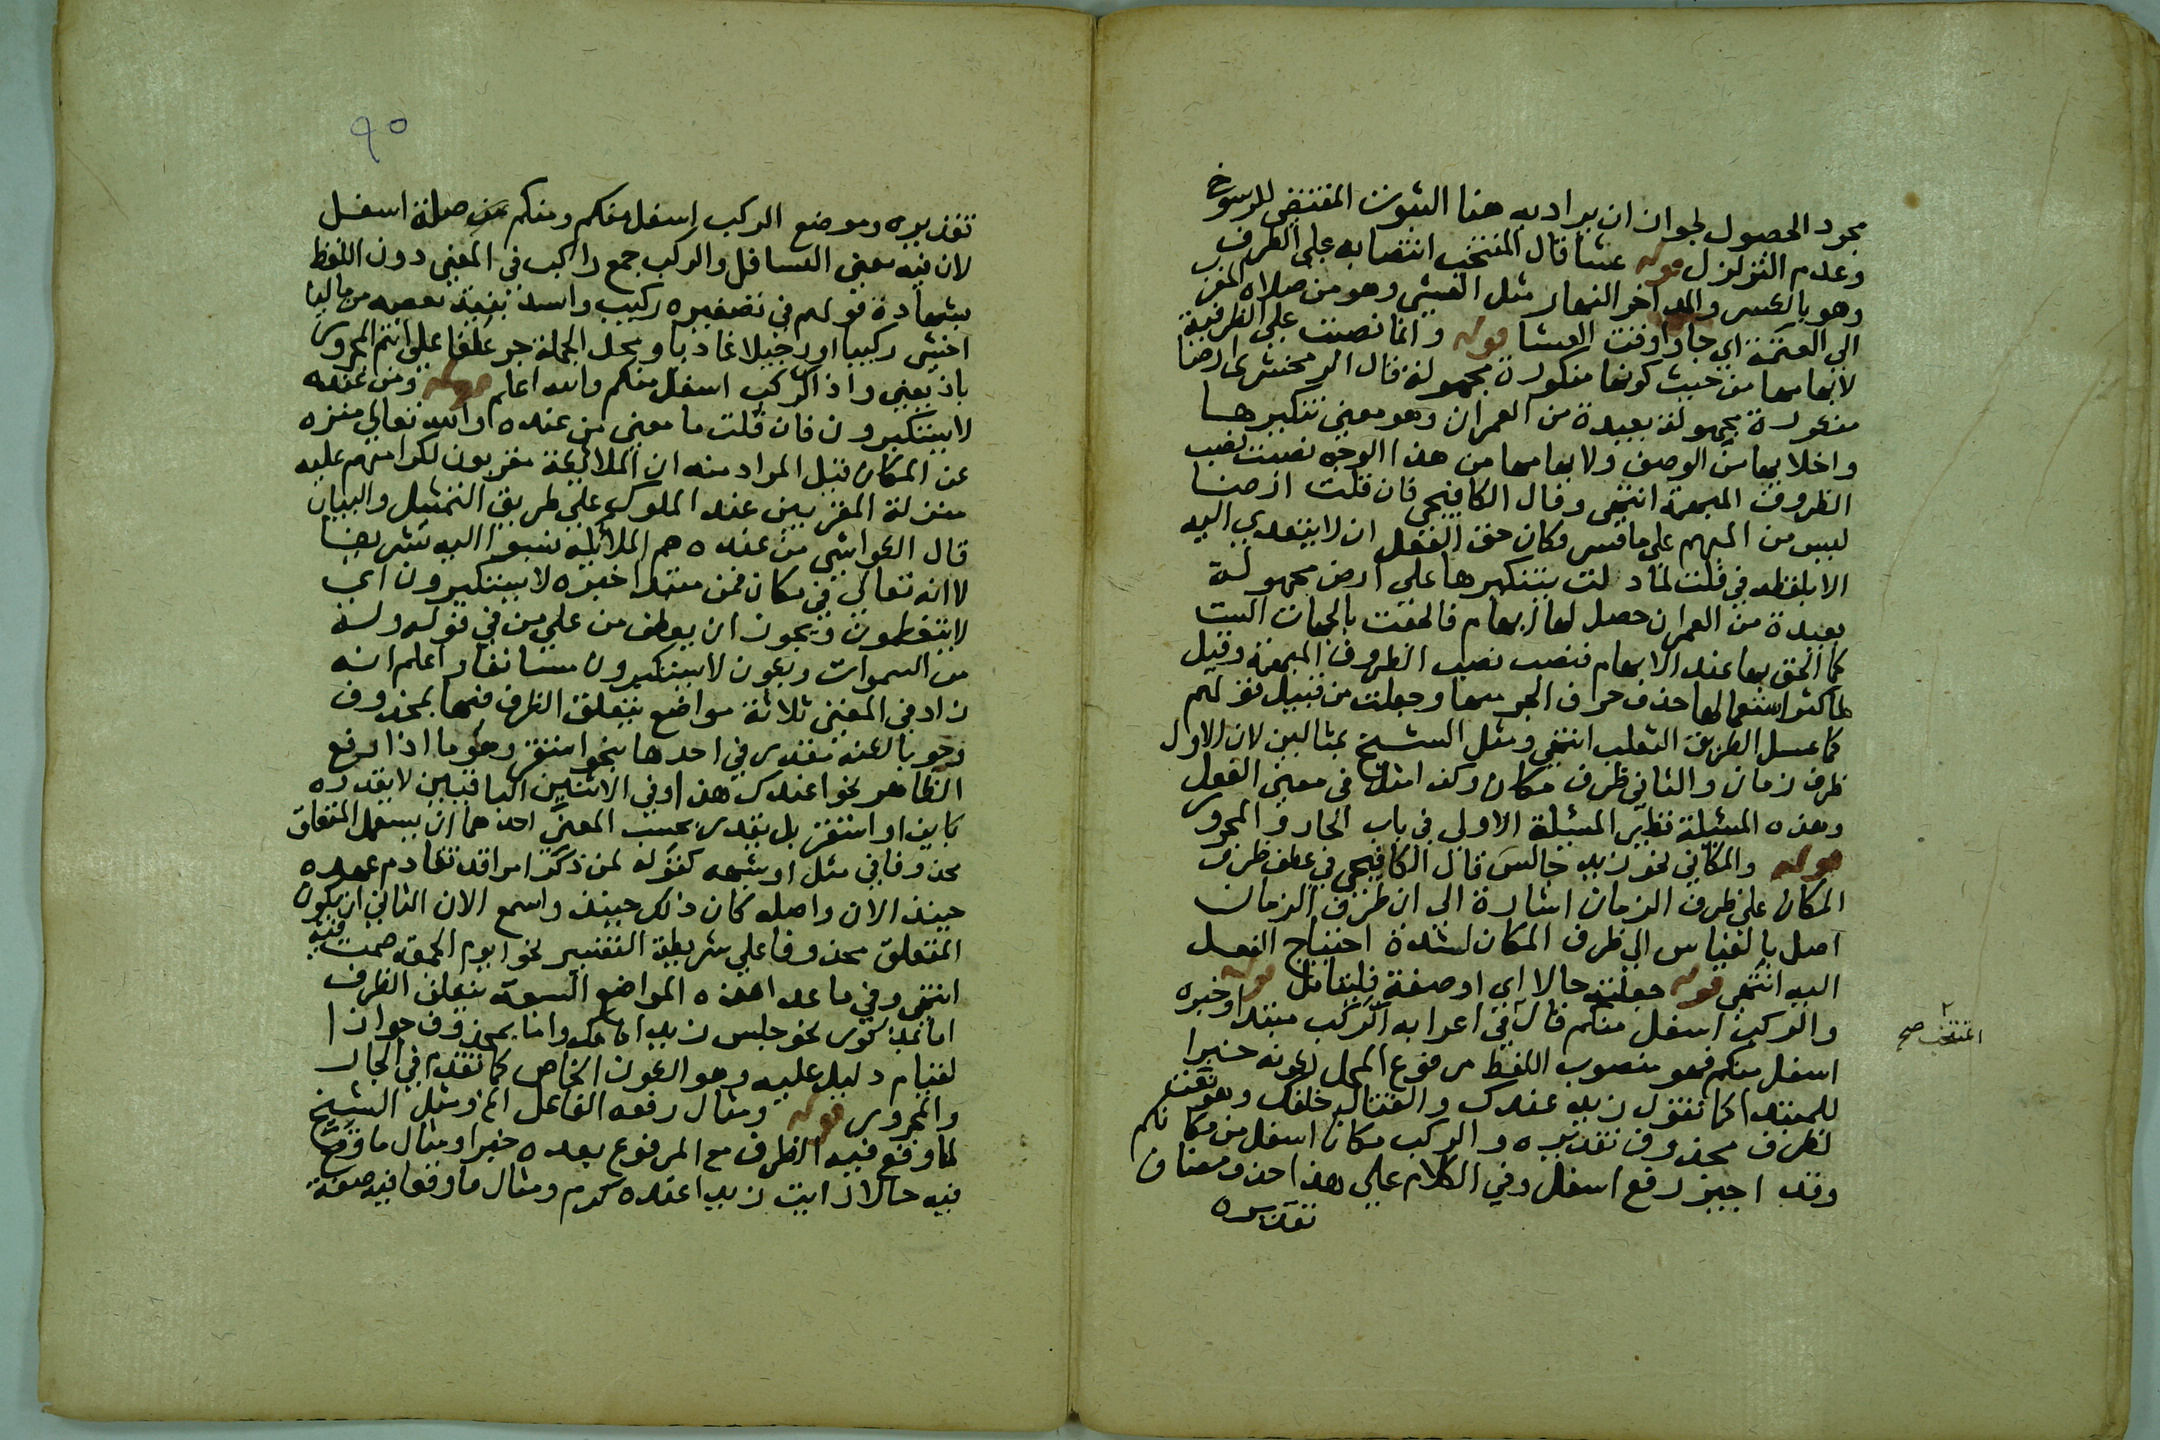 مجرد الحصول لجواز ان يراد به هنا الثبوت المقتضي للرسوخ
وعدم التزلزل قوله عشا قال المنتخب انتصابه على الظرف
وهو بالكسر والمد اخر النهار مثل العشي وهو من صلاة المغرب
الى العتمة اي جاوا وقت العشا قوله وانما نصبت على الظرفية
لابهامها من حيث كونها منكورة مجهولة قال الزمخشري ارضا
منكورة مجهولة بعيدة من العمران وهو معنى تنكيرها
واخلايها من الوصف ولابهامها من هذا الوجه نصبت نصب
الظروف المبهمة انتهى وقال الكافيجي فان قلت ارضا
ليس من المبهم على ما فسر فكان حق الفعل ان لا يتعدي اليه
الا بلفظه في قلت لما دلت بتنكيرها على ارض مجهولة
بعيدة من العمران حصل لها ابهام فالحقت بالجهات الست
كما الحق بها عند الابهام فنصب نصب الظروف المبهمة وقيل
لما كثر استعمالها حذف حرف الجر منها وجعلت من قبيل قولهم
كما عسل الطريق الثعلب انتهى ومثل الشيخ بمثالين لان الاول
ظرف زمان والثاني ظرف مكان وكذا مثل في معنى الفعل
وهذه المسئلة نظير المسئلة الاولى في باب الجار والمجرور
قوله والمكاني نحو زيد جالس قال الكافيجي في عطف ظرف
المكان على ظرف الزمان اشارة الى ان ظرف الزمان
اصل بالقياس الى ظرف المكان لشدة احتياج الفعل
اليه انتهى قوله جعلته حالا اي او صفة فليتامل قوله
والركب اسفل منكم قال في اعرابه الركب مبتدا وخبره
المنتخب صح
اسفل منكم فهو منصوب اللفظ مرفوع المحل لكونه خبرا
للمبتدا كما تقول زيد عندك والقتال خلفك وهو نعت
لظرف محذوف تقديره والركب مكانا اسفل من مكانكم
وقد اجيز رفع اسفل وفي الكلام على هذا حذف مضاف
تقديره
٩٥
تقديره وموضع الركب اسفل منكم ومنكم من صلة اسفل
لان فيه معنى التسافل والركب جمع راكب في المعنى دون اللفظ
بشهادة قولهم في تصغيره ركيب وانشد بنيته بعصبة من ماليا
اخشى ركيبا او رجيلا غاديا ومحل الجملة جر عطفا على انتم المجرور
باذ يعني واذ الركب اسفل منكم والله اعلم قوله ومن عنده
لا يستكبرون فان قلت ما معنى من عنده والله تعالى منزه
عن المكان قيل المراد منه ان الملائكة مقربون لكرامتهم عليه
منزلة المقربين عند الملوك على طريق التمثيل والبيان
قال الكواشي من عنده هم الملائكة نسبوا اليه تشريفا
لا انه تعالى في مكان فمن مبتدا خبره لا يستكبرون اي
لا يتعظمون ويجوز ان يعطف من على من في قوله وله
من السموات ويكون لا يستكبرون مستانفا واعلم انه
زاد في المغني ثلاثة مواضع يتعلق الظرف فيها بمحذوف
وجوبا لكنه يقدر في احدها بنحو استقر وهو ما اذا رفع
الظاهر نحو اعندك هذا وفي الاثنين الباقيين لا يقدره
كاين او استقر بل يقدر بحسب المعنى احدهما ان يستعمل المتعلق
محذوفا في مثل او شبهه كقوله لمن ذكر امرا قد تقادم عهده
حينئذ الان واصله كان ذلك حينئذ واسمع الان الثاني ان يكون
المتعلق محذوفا على شريطة التفسير نحو ايوم الجمعة صمت فيه
انتهى وفي ما عدا هذه المواضع التسعة يتعلق الظرف
اما بمذكور نحو جلس زيد امامك واما بمحذوف جوازا
لقيام دليل عليه وهو الكون الخاص كما تقدم في الجار
والمجرور قوله ومثال رفعه الفاعل الخ ومثل الشيخ
لما وقع فيه الظرف مع المرفوع بعده خبرا ومثال ما وقع
فيه حالا رايت زيدا عنده كرم ومثال ما وقعا فيه صفة